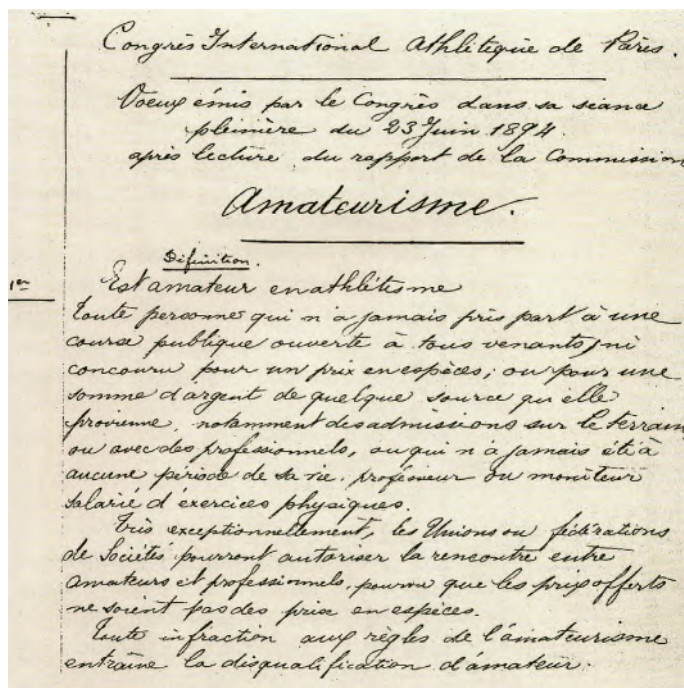 Congrès International Athlétique de Paris.
Voeux émis par le Congrès dans sa séance
pleinière du 23 Juin 1894.
après lecture du rapport de la Commission
Amateurisme.
Définition.
1er
Est amateur en athlétisme
toute personne qui n'a jamais pris part à une
course publique ouverte à tous venants, ni
concouru pour un prix en espèces; ou pour une
somme d'argent de quelque source qu'elle
provienne, notamment des admissions sur le terrain
ou avec des professionnels, ou qui n'a jamais été à
aucune période de sa vie, professeur ou moniteur
salarié d'exercices physiques.
Très exceptionnellement, les Unions ou fédérations
de Sociétés pourront autoriser la rencontre entre
amateurs et professionnels, pourvu que les prix offerts
ne soient pas des prix en espèces.
Toute infraction aux règles de l'amateurisme
entraîne la disqualification d'amateur.